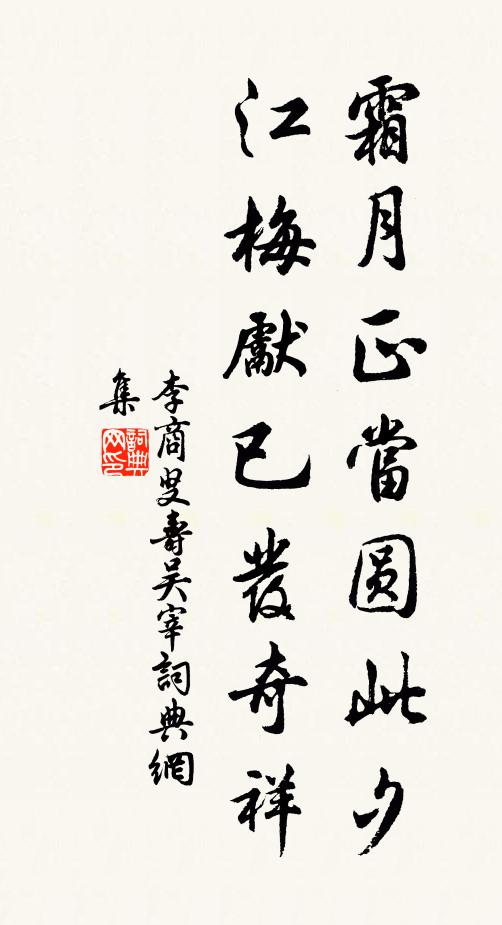 霜月正當圓此夕
江梅獻已發奇祥
李商叟壽吴宰詞典網
集
詞典网印